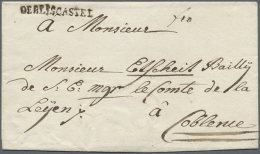 DE BLISCASTEL
A Monsieur
Monsieur Etscheit Bailly
de S: E: mgr le Comte de la
Leÿen
à
Coblence